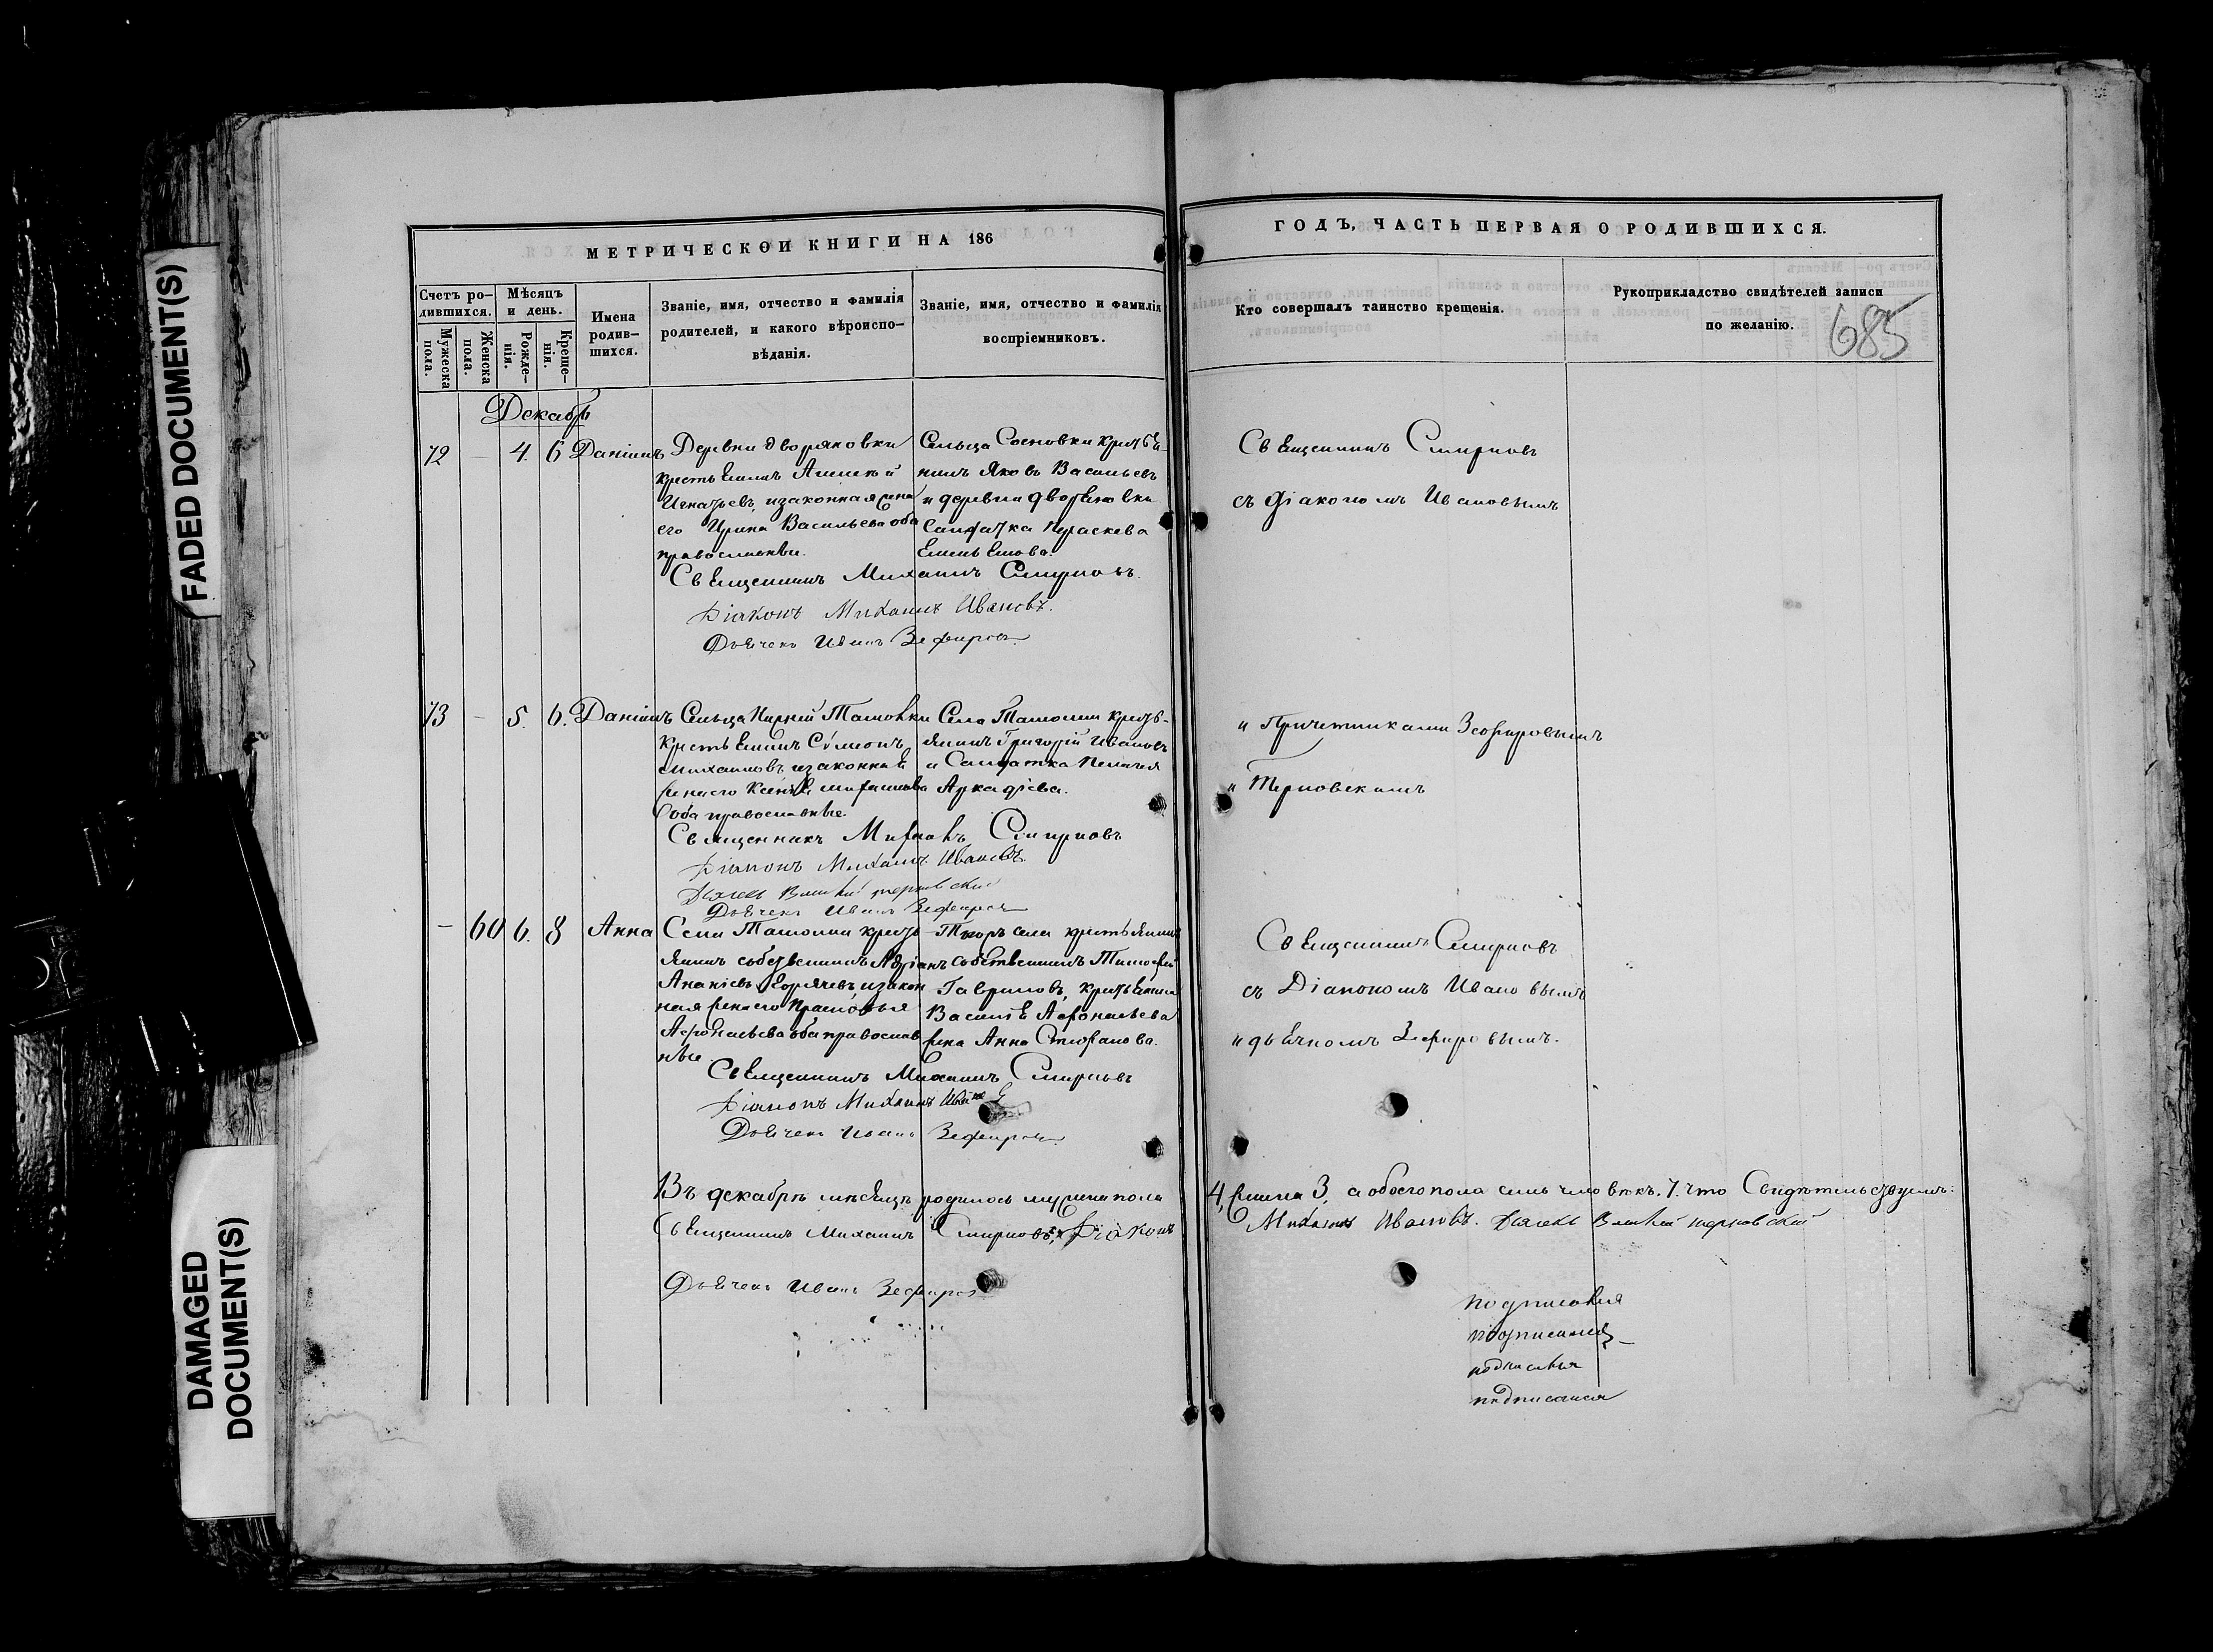 FADED DOCUMENT(S)
DAMAGED
DOCUMENT(S)
МЕТРИЧЕСКОЙ КНИГИ НА 186
Счетъ ро-
дившихся.
Мужеска
пола.
Женска
пола.
Мѣсяцъ
и день.
Рожде-
нія.
Креще-
нія.
Имена
родив-
шихся.
Званіе, имя, отчество и фамилія
родителей, и какого вѣроиспо-
вѣданія.
Званіе, имя, отчество и фамилія
воспріемниковъ.
Декабрь
72 - 4. 6 Даніилъ
Деревни Дворяновки
крестьянинъ Алексѣй
Игнатьевъ, и законная жена
его Ирина Васильева оба
православные.
Сельца Сосновки кресть я-
нинъ Яковъ Васильевъ
и деревни Дворяновки
Солдатка Параскева
Священникъ Михаилъ Смирновъ.
Діаконъ Михаилъ Ивановъ.
Дьячекъ Иванъ Зефировъ
73 - 5. 6. Даніилъ
Сельца
крестьянинъ Сѵмеонъ
Михайловъ, и законная
жена его Ксенія
оба православные.
Села крестъ-
янинъ Григорій Ивановъ
и Солдатка Пелагея
Аркадіева.
Священникъ Михаилъ Смирновъ
Діаконъ Михаилъ Ивановъ.
Дьячекъ Терновскій
Дьячекъ Иванъ Зефировъ
- 60 6. 8 Анна
Села крестъ-
янинъ собственникъ Адріанъ
Ананіевъ и закон
ная жена его
Афонасьева оба православ
ные.
села крестьянинъ
собственникъ Тимофей
Гавриловъ, крестьянина
Василія Афонасьева
жена Анна Стефанова.
Священникъ Михаилъ Смирновъ
Діаконъ Михаилъ
Дьячекъ Иванъ Зефировъ
Въ декабрѣ мѣсяцѣ родилось мужска пола
Священникъ Михаилъ Смирновъ, Діаконъ
Дьячекъ Иванъ Зефировъ
ГОДЪ, ЧАСТЬ ПЕРВАЯ О РОДИВШИХСЯ.
Кто совершалъ таинство крещенія.
Рукоприкладство свидѣтелей записи
по желанію.
685
Священникъ Смирновъ
съ діакономъ Ивановымъ
и Причетниками Зефировымъ
и Терновскимъ
Священникъ Смирновъ
съ Діакономъ Ивановымъ
и дьячкомъ Зефировымъ.
4, женска 3, а обоего пола семь человѣкъ. 7. что Свидѣтельствуемъ:
Михаилъ Ивановъ. Дьячекъ Терновскій
подписался
подписался
подписался
подписался